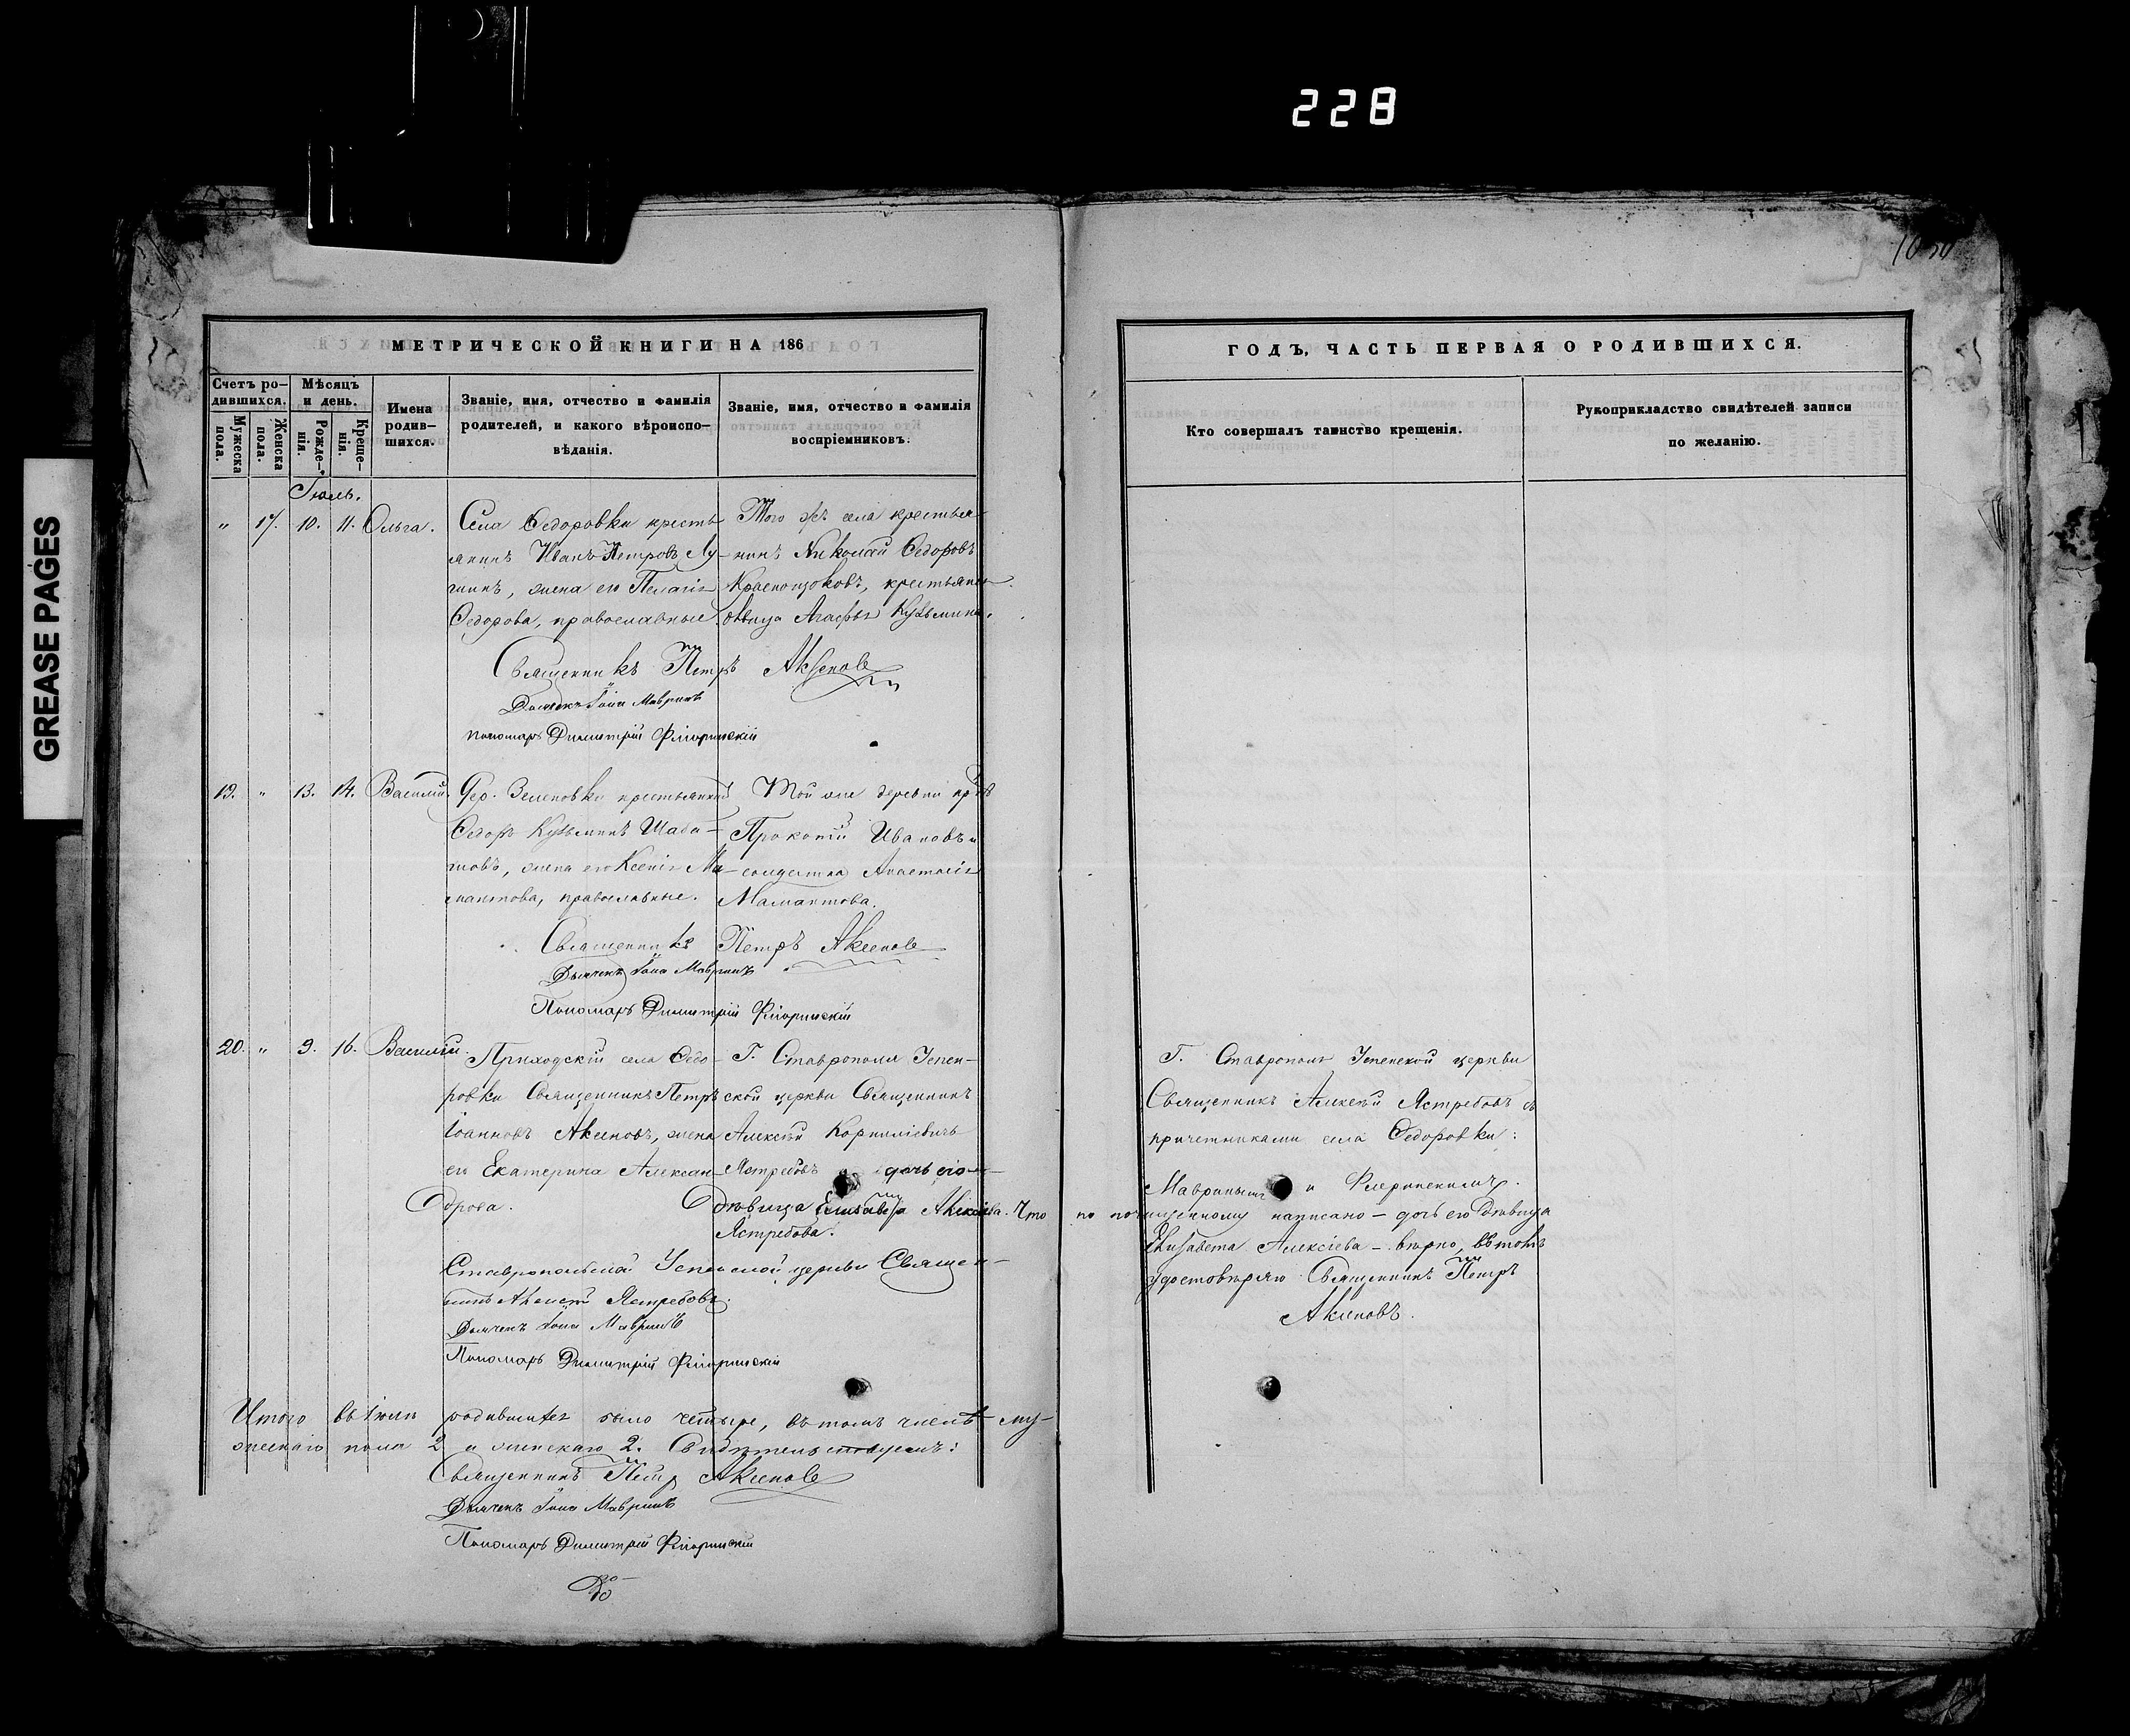 228
GREASE PAGES
МЕТРИЧЕСКОЙ КНИГИ НА 186
ГОДЪ, ЧАСТЬ ПЕРВАЯ О РОДИВШИХСЯ.
Счетъ ро-
дившихся.
Мужеска
пола.
Женска
пола.
Мѣсяцъ
и день.
Рожде-
нія.
Креще-
нія.
Имена
родив-
шихся.
Званіе, имя, отчество и фамилія
родителей, и какого вѣроиспо-
вѣданія.
Званіе, имя, отчество и фамилія
воспріемниковъ.
Кто совершалъ таинство крещенія.
Рукоприкладство свидѣтелей записи
по желанію.
Іюль.
" 17. 10. 11. Ольга.
Села Ѳедоровки кресть
янинъ Иванъ Петровъ Лу-
нинъ, жена его Пелагія
Ѳедорова, православные.
Того же села крестья-
нинъ Николай Ѳедоровъ
крестьянск
дѣвица Агафья Кузьмина.
Священникъ Петръ Аксеновъ
Дьячекъ Іона Мавринъ
пономарь Димитрій Флоринскій
19. " 13. 14. Василій.
Дер. Зеленовки крестьянинъ
Ѳедоръ Кузьминъ Шаба-
новъ, жена его Ксенія Ма-
мантова, православные.
Той же деревни кр
Прокопій Ивановъ и
солдатка Анастасія
Мамантова.
Священникъ Петръ Аксеновъ
Дьячекъ Іона Мавринъ
Пономарь Димитрій Флоринскій
20. " 9. 16. Василій.
Приходскій села Ѳедо-
ровки Священникъ Петръ
Іоанновъ Аксеновъ, жена
его Екатерина Алексан-
дрова.
Г. Ставрополя Успен-
ской церкви Священникъ
Алексѣй Корниліевичъ
Ястребовъ дочь его
дѣвица Елисавета Алексіева. Что
Ястребова.
Г. Ставрополя Успенской церкви
Священникъ Алексѣй Ястребовъ съ
причетниками села Ѳедоровки:
Мавринымъ и Флоринскимъ.
по почищенному написано – дочь его дѣвица
Елисавета Алексіева – вѣрно, въ томъ
удостовѣряю Священникъ Петръ
Аксеновъ.
Ставропольской Успенской церкви Священ-
никъ Алексѣй Ястребовъ.
Дьячекъ Іона Мавринъ
Пономарь Димитрій Флоринскій
Итого въ Іюлѣ родившихся было четыре, въ томъ числѣ му-
жескаго пола 2 и женскаго 2. Свидѣтельствуемъ:
Священникъ Петръ Аксеновъ
Дьячекъ Іона Мавринъ
Пономарь Димитрій Флоринскій